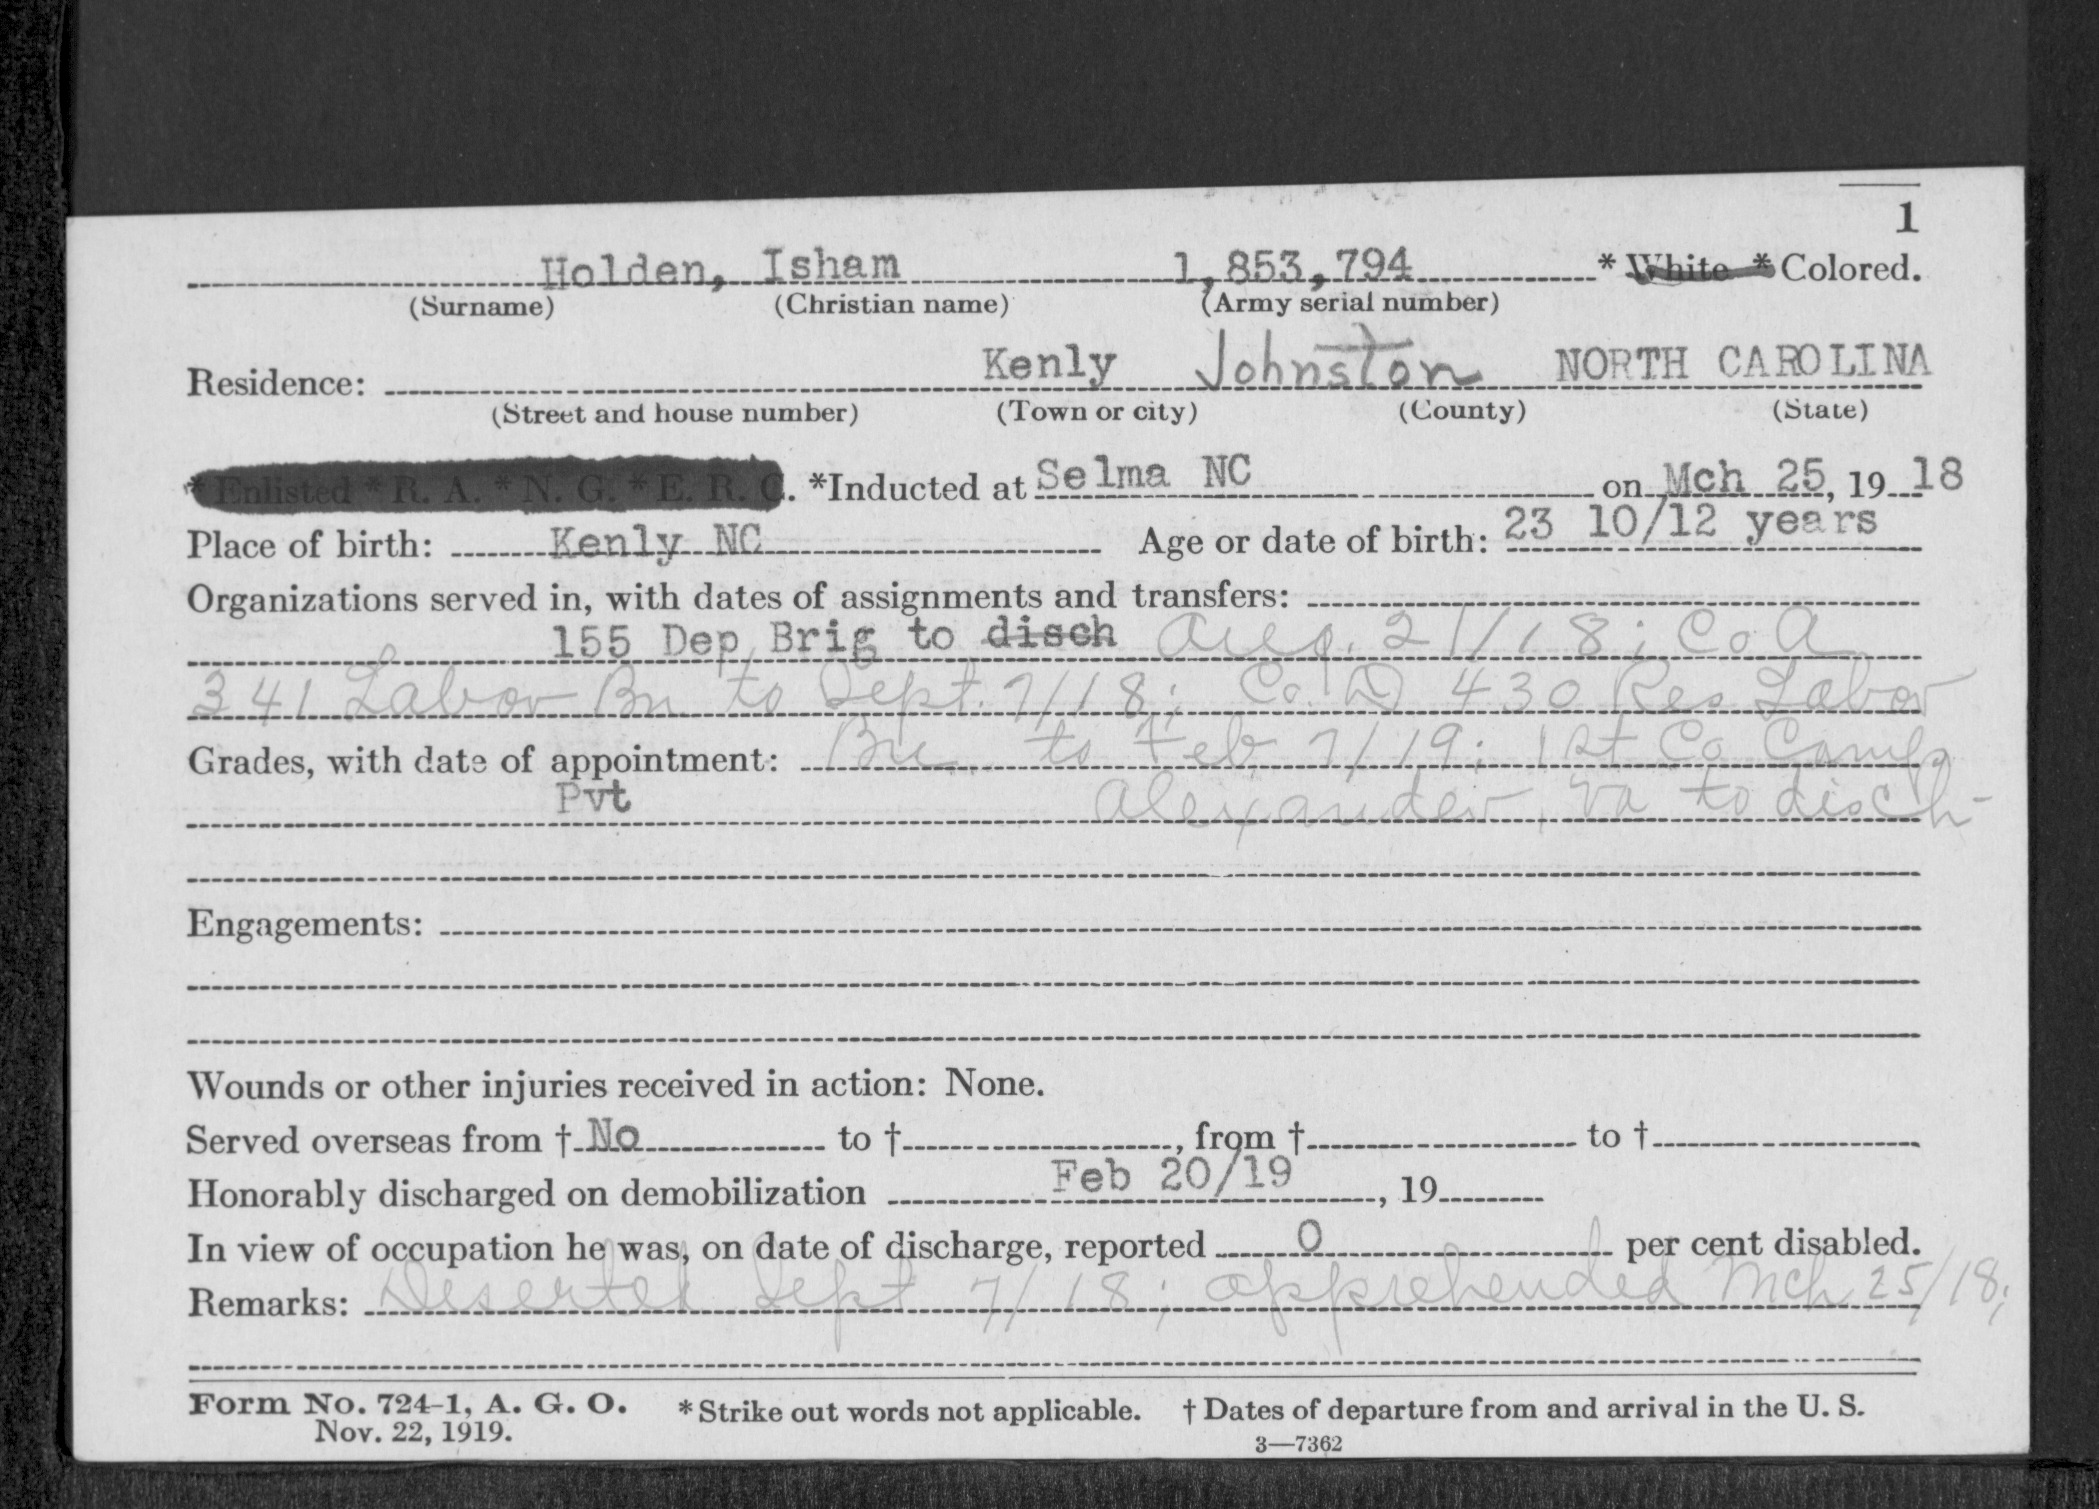 1
Holden, Isham 1,853,794 * White * Colored.
(Surname) (Christian name) (Army serial number)
Residence: Kenly Johnston NORTH CAROLINA
(Street and house number) (Town or city) (County) (State)
* Enlisted * R. A. * N. G. * E. R. C. *Inducted at Selma NC on Mch 25, 19 18
Place of birth: Kenly NC Age or date of birth: 23 10/12 years
Organizations served in, with dates of assignments and transfers:
155 Dep Brig to disch Aug. 21/18; Co A
341 Labor Bn to Sept. 7/18; Co. D 430 Res Labor
Grades, with date of appointment: Bn. to Feb 7/19; 1st Co Camp
Pvt Alexander, Va to disch-
Engagements:
Wounds or other injuries received in action: None.
Served overseas from † No to †, from † to †
Honorably discharged on demobilization Feb 20/19, 19
In view of occupation he was, on date of discharge, reported 0 per cent disabled.
Remarks: Deserted Sept 7/18; apprehended Mch 25/18;
Form No. 724-1, A. G. O. *Strike out words not applicable. † Dates of departure from and arrival in the U. S.
Nov. 22, 1919. 3—7362